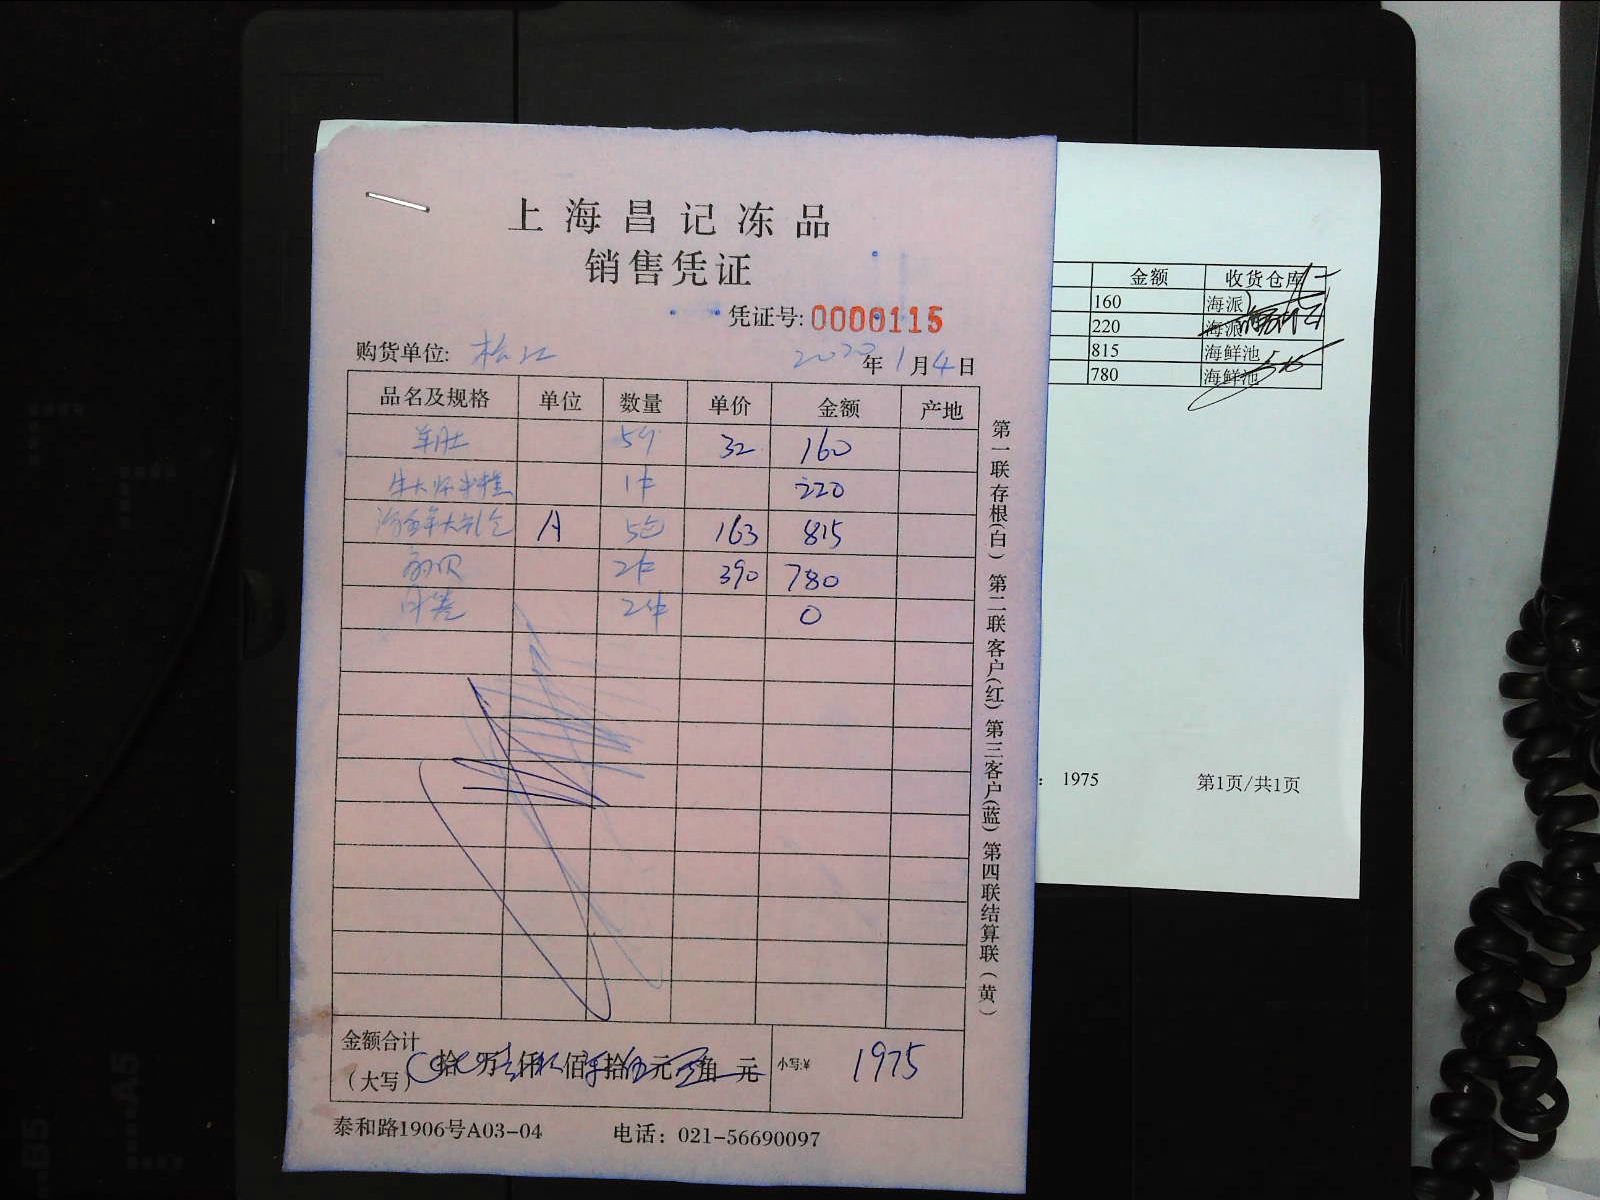 上海昌记冻品
销售凭证
凭证号: 0000115
购货单位: 松江 2020年1月4日
品名及规格 单位 数量 单价 金额 产地
羊肚 5个 32 160
1件 220
A 5包 163 815
扇贝 2件 390 780
2件 0
金额合计
(大写) 拾 万 仟 佰 拾 元 角 元 小写:¥ 1975
泰和路1906号A03-04 电话: 021-56690097
第一联存根(白) 第二联客户(红) 第三客户(蓝) 第四联结算联(黄)
金额 收货仓库
160 海派
220 海派
815 海鲜池
780 海鲜池
: 1975 第1页/共1页
B5
A5